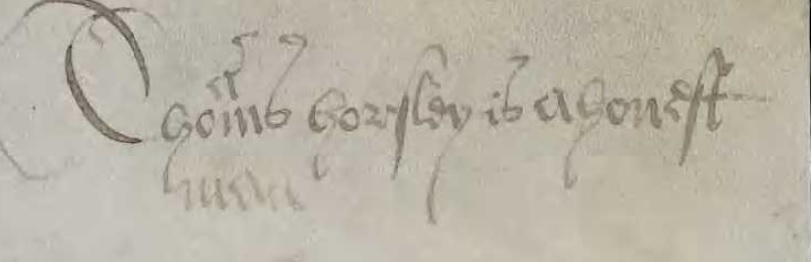 Thoms horsley is a honest